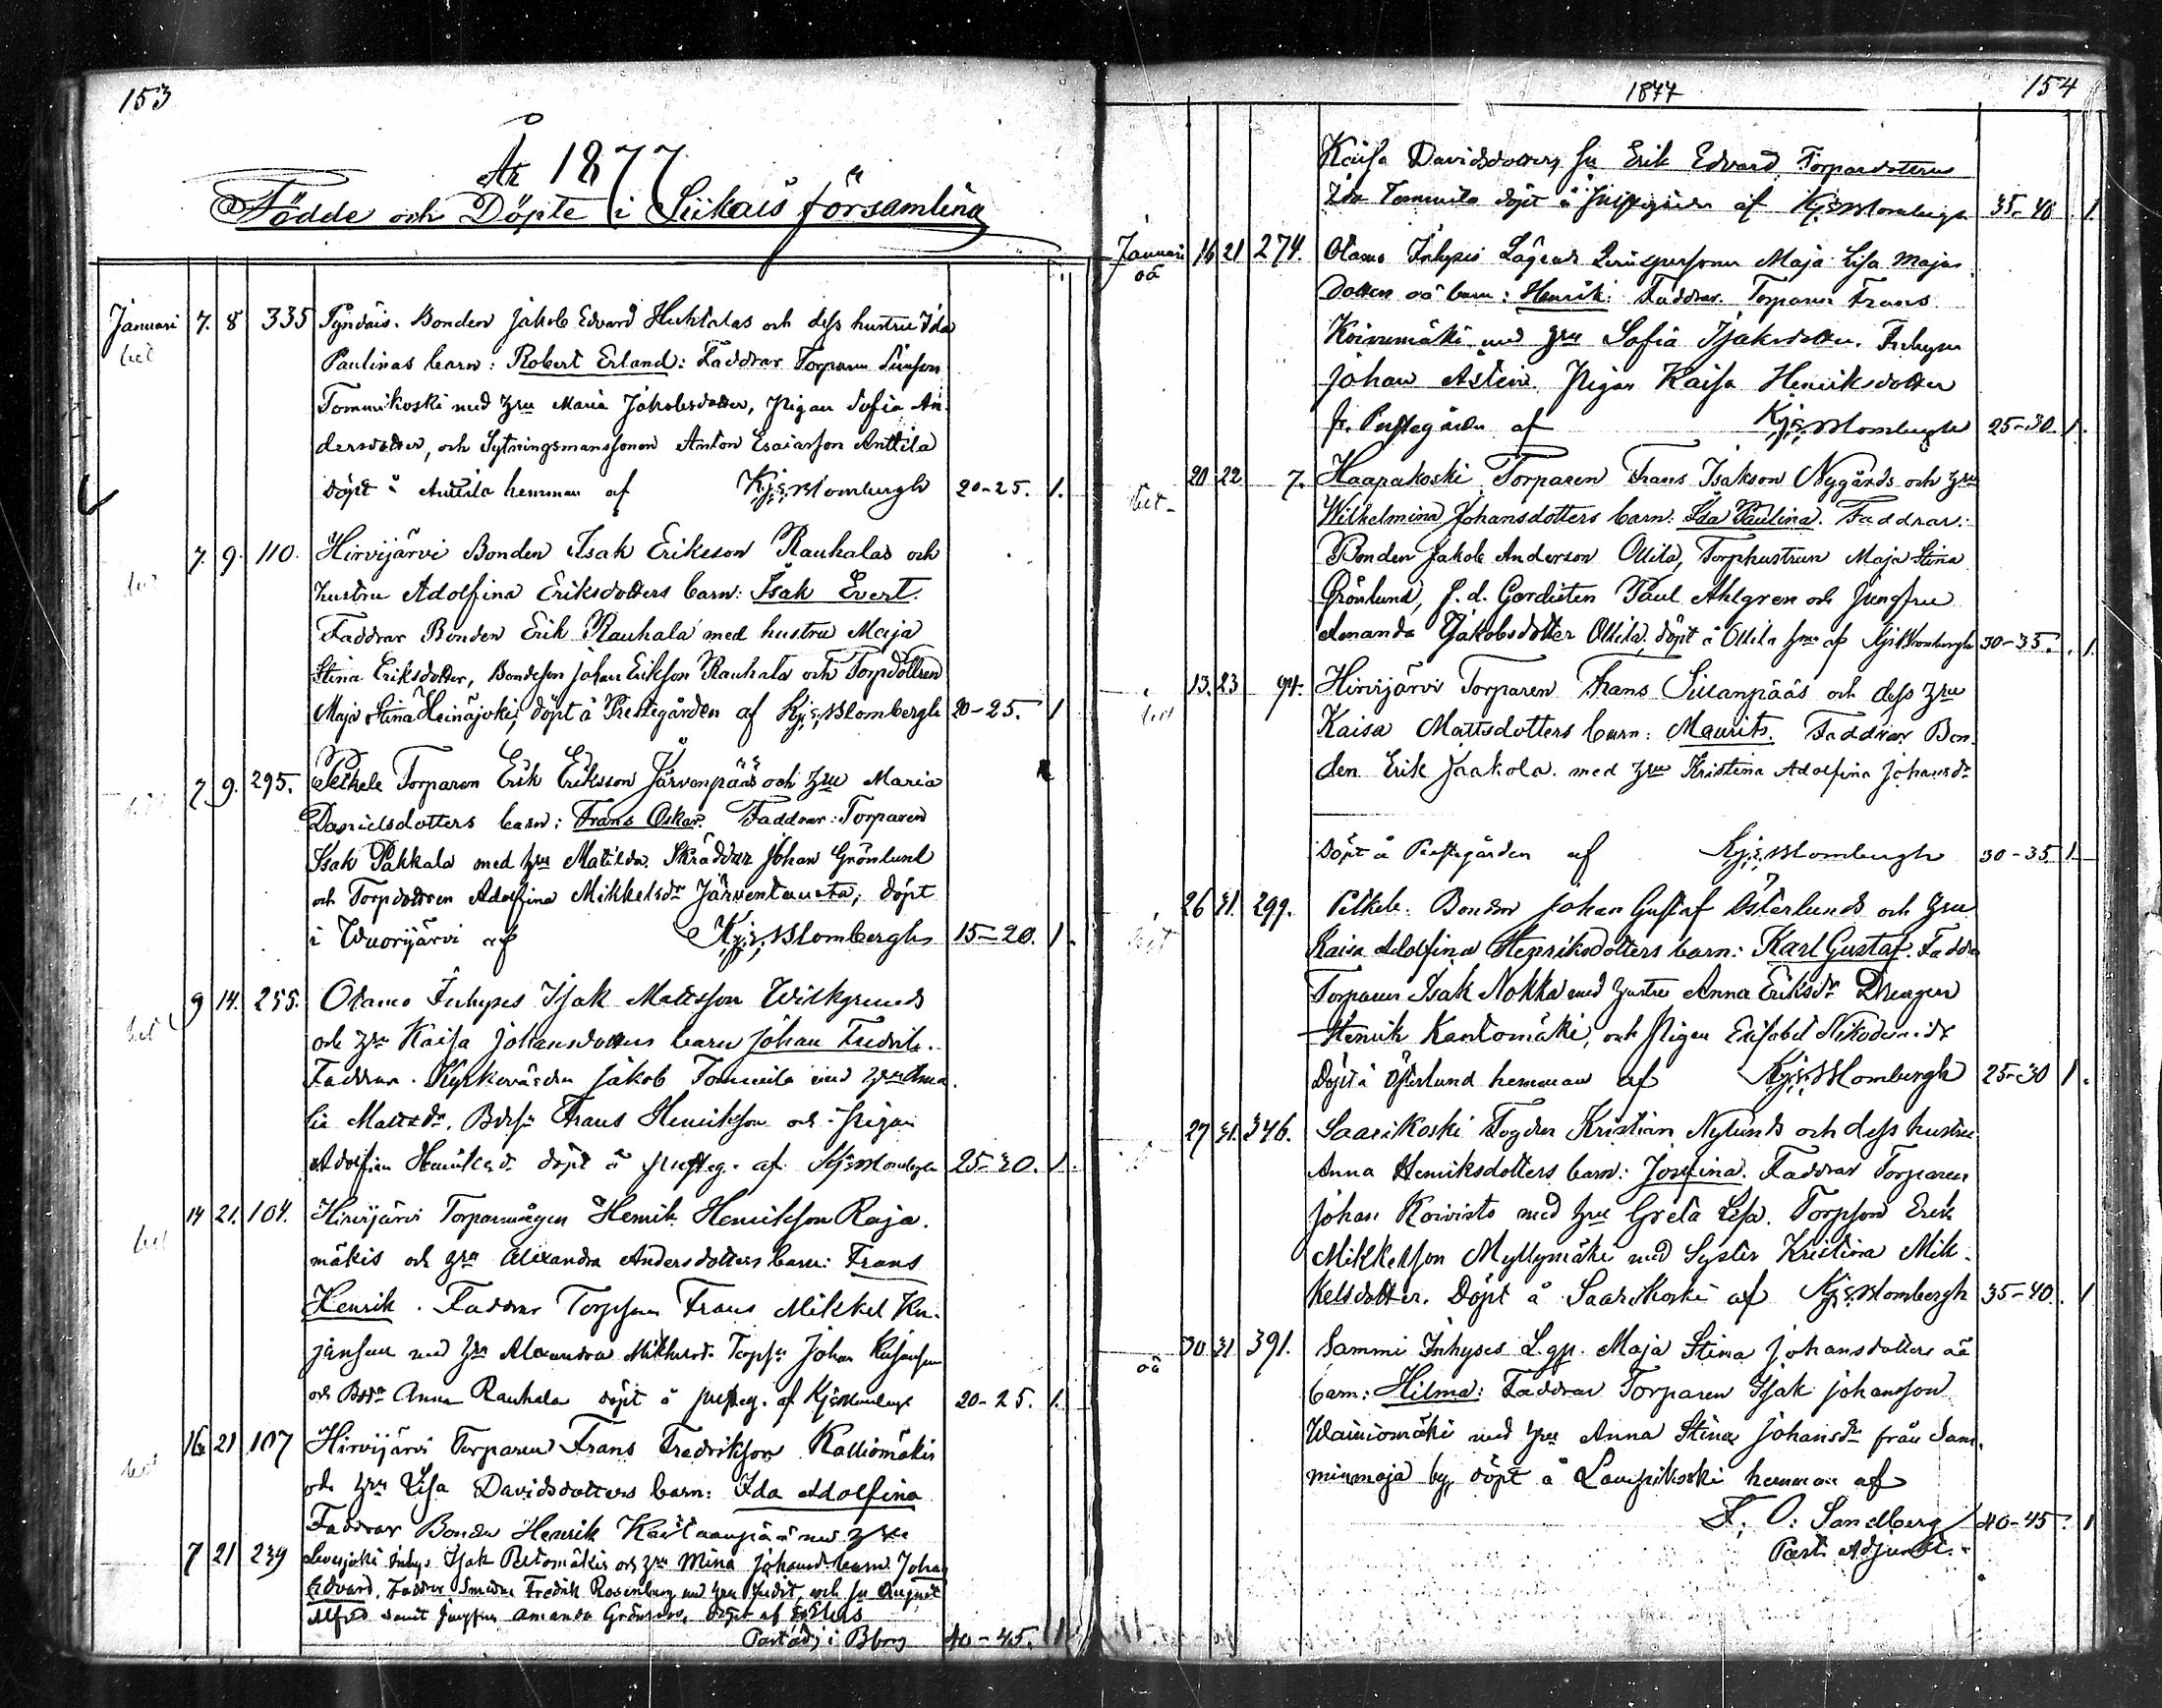 153
År 1877
Födde och Döpte i Siikais församling
Januari 7. 8 335 Pyndäis. Bonden Jakob Edvard Huhtalas och dess hustru Ida
bet Paulinas barn: Robert Erland: Faddrar Torparen Simson
Tommikoski med hru Maria Jakobsdotter, pigan Sofia An-
dersdotter, och Sytningsmanssonen Anton Esaiasson Anttila
döpt å Anttila hemman af Kjs: Blombergh 20-25. 1.
7. 9. 110. Hirvijärvi Bonden Isak Eriksson Rauhalas och
hustru Adolfina Eriksdotters barn: Isak Evert.
Faddrar Bonden Erik Rauhala med hustru Maja
Stina Eriksdotter, Bondeson Johan Erikson Rauhala och Torpdottren
Maja Stina Heinäjoki, döpt å Prestegården af Kjs: Blombergh 20-25. 1
7 9. 295. Petkele Torparen Erik Eriksson Järvenpääs och hru Maria
Danielsdotters barn: Frans Oskar. Faddrar: Torparen
Isak Pakkala med hru Matilda. Skräddar Johan Grönlund
och Torpdottren Adolfina Mikkelsdr Järventausta; döpt
i Wuorijärvi af Kjs: Blombergh 15-20. 1.
9 14. 255. Otamo Inhyses Isak Mattsson Wilkgrunds
bet och hru Kaisa Johansdotters barn Johan Fredrik.
Faddrar. Kyrkovärden Jakob Tommila med hru Ama-
lia Mattsdr. Bdsn Frans Henrikson och pigan
Adolfina Henriksdr döpt å presteg. af Kjs Blombergh 25-30. 1.
14 21. 104. Hirvijärvi Torparmågen Henrik Henrikson Raja-
bet mäkis och hru Alexandra Andersdotters barn: Frans
Henrik. Faddrar Torpson Frans Mikkel Ku-
janson med hru Alexandra Mikkelsd. Torpsn Johan Kujanson
och Bdr Anna Rauhala döpt å presteg. af Kjs Blombergh 20-25. 1.
16 21 107 Hirvijärvi Torparen Frans Fredrikson Kalliomäkis
bet och hru Lisa Davidsdotters barn: Ida Adolfina
Faddrar Bonden Henrik Kaitaanpää med hru
7 21 239 Leväsjoki Inhys. Isak Peltomäkis och hru Mina Johansd. barn Johan
Edvard. Faddrar Smeden Fredrik Rosenberg med hru Judit, och August
Alfred samt jungfrun Amanda Grönroos, döpt af
Past adj i Bborg 40-45. 1
1877
154
Kaisa Davidsdotter, Erik Edvard, Torpardottren
Ida Tommila döpt å prestgården af Kjs Blombergh 35-40 1.
Januari 16 21 274. Otamo Inhyses Lägends Qvinspersonen Maja Lisa Majas
oä Dotters oä barn: Henrik: Faddrar. Torparen Frans
Koivumäki med hru Sofia Isaksdotter. Inhyses
Johan Astein. Pigan Kaisa Henriksdotter
fr. Prestegården af Kjs: Blombergh 25-30. 1.
20 22 7. Haapakoski Torparen Frans Isakson Nygårds och hru
bet Wilhelmina Johansdotters barn: Ida Paulina. Faddrar:
Bonden Jakob Anderson Ollila, Torphustrun Maja Stina
Grönlund, f.d. Gardisten Paul Ahlgren och Jungfru
Amanda Jakobsdotter Ollila, döpt å Ollila hmn af Kjs Blombergh 30-35. 1.
13. 23 94. Hirvijärvi Torparen Frans Sillanpääs och dess hru
bet Kaisa Mattsdotters barn: Maurits. Faddrar Bon-
den Erik Jaakola. med hru Kristina Adolfina Johansdr
Döpt å Prestegården af Kjs: Blombergh 30-35 1
26 31. 299. Petkele: Bonden Johan Gustaf Österlunds och hru
bet Kaisa Adolfina Henriksdotters barn: Karl Gustaf. Faddr.
Torparen Isak Nokka med hustru Anna Eriksdr Drengen
Henrik Kantomäki, och Pigan Elisabet Nikodemidr
Döpt å Österlund hemman af Kjs: Blombergh 25-30 1.
27 31. 346. Saarikoski Fogden Kristian Nylunds och dess hustru
Anna Henriksdotters barn: Josefina. Faddrar Torparen
Johan Koivisto med hru Greta Lisa. Torpson Erik
Mikkelson Myllymäki med Syster Kristina Mik-
kelsdotter. Döpt å Saarikoski af Kjs: Blombergh 35-40. 1
30. 31 391. Sammi Inhyses L.qp. Maja Stina Johansdotters oä
oä barn: Hilma: Faddrar Torparen Isak Johansson
Wainiomäki med hru Anna Stina Johansdr från Sam-
minmaja by, döpt å Lauhikoski hemman af
F. O. Sandberg 40-45. 1
Past. Adjunkt.